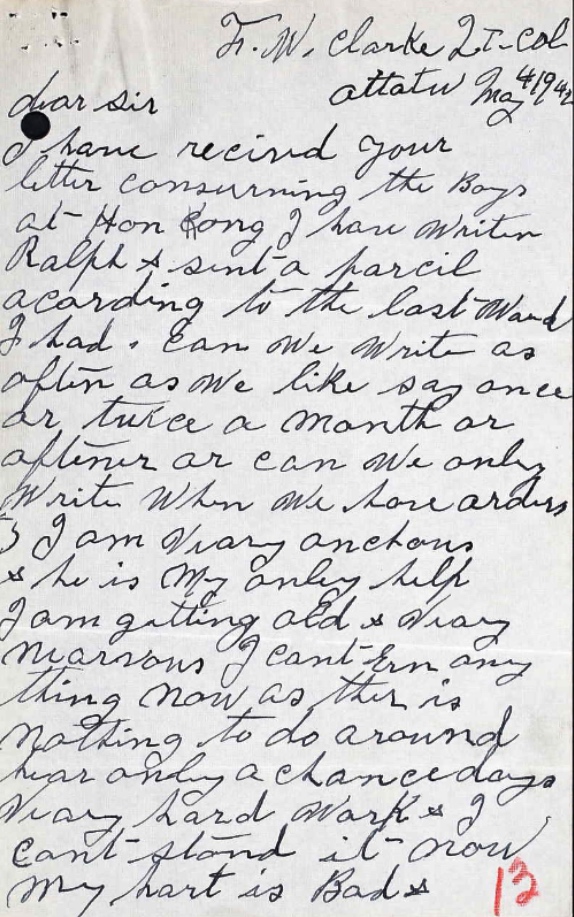 F. W. Clarke Lt-Col
attatw May 4 1942
dear sir
I have recivd your
letter consurning the Boys
at Hon Kong I have Writen
Ralph & sent a parcil
acording to the last Ward
I had. Can We Write as
often as We like say once
or twice a month or
oftener or can We only
Write When We have orders
I am Veary anchous
& he is My only help
I am getting old & Veary
nearvous I cant Ern any
thing now as ther is
nothing to do around
hear only a chance days
Veary hard Work & I
cant stand it now
My hart is Bad &
13